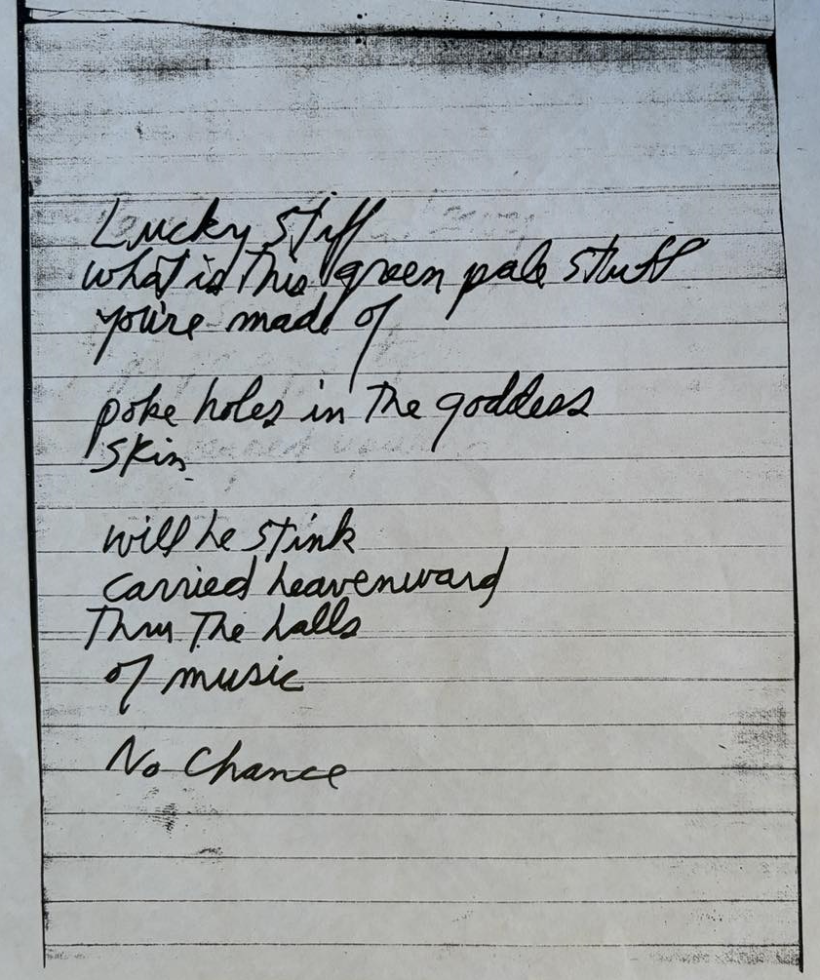 Lucky Stiff
what is this green pale stuff
you're made of
poke holes in the goddess
skin
will he stink
carried heavenward
Thru The halls
of music
No Chance